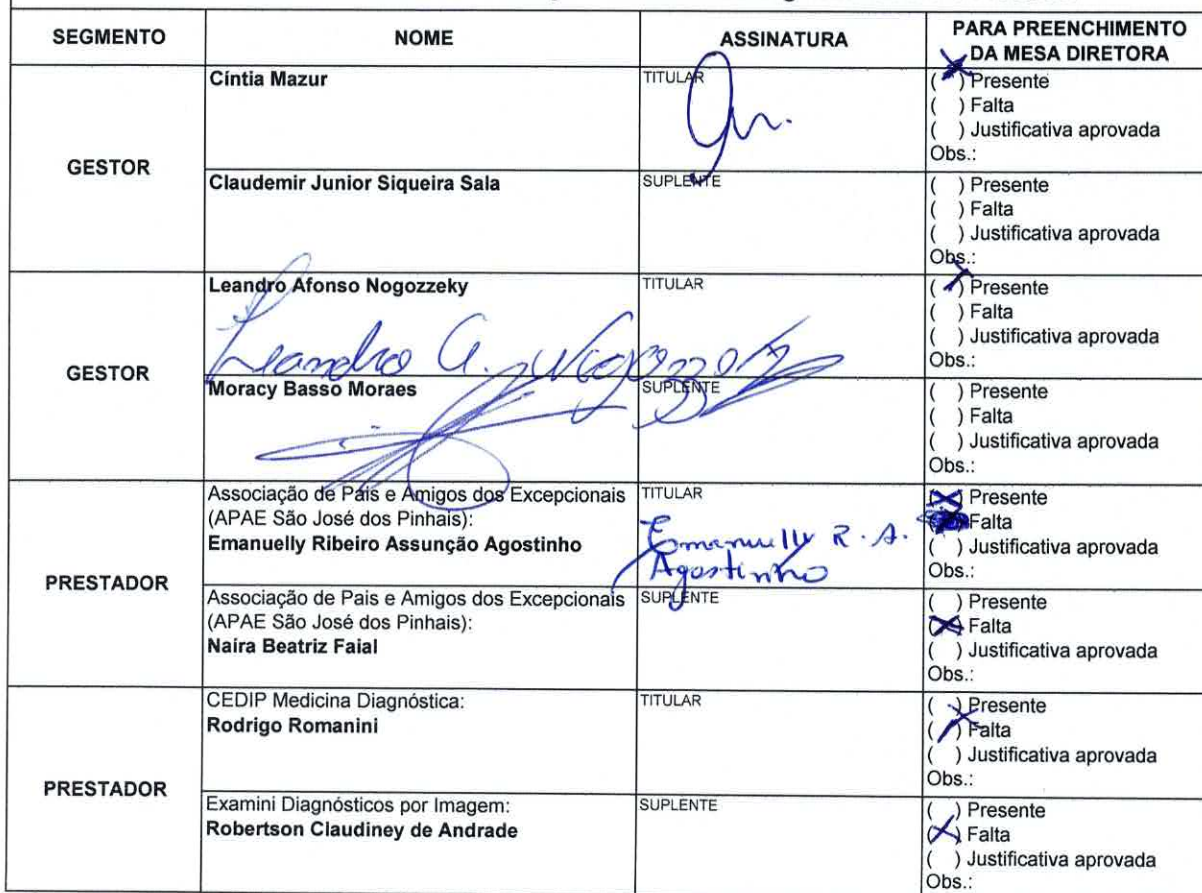 SEGMENTO NOME ASSINATURA PARA PREENCHIMENTO DA MESA DIRETORA
GESTOR
Cíntia Mazur
TITULAR
( X ) Presente
( ) Falta
( ) Justificativa aprovada
Obs.:
Claudemir Junior Siqueira Sala
SUPLENTE
( ) Presente
( ) Falta
( ) Justificativa aprovada
Obs.:
GESTOR
Leandro Afonso Nogozzeky
TITULAR
Leandro A. Nogozzeky
( X ) Presente
( ) Falta
( ) Justificativa aprovada
Obs.:
Moracy Basso Moraes
SUPLENTE
( ) Presente
( ) Falta
( ) Justificativa aprovada
Obs.:
PRESTADOR
Associação de Pais e Amigos dos Excepcionais
(APAE São José dos Pinhais):
Emanuelly Ribeiro Assunção Agostinho
TITULAR
Emanuelly R. A.
Agostinho
(X) Presente
Falta
( ) Justificativa aprovada
Obs.:
Associação de Pais e Amigos dos Excepcionais
(APAE São José dos Pinhais):
Naíra Beatriz Faial
SUPLENTE
( ) Presente
(X) Falta
( ) Justificativa aprovada
Obs.:
PRESTADOR
CEDIP Medicina Diagnóstica:
Rodrigo Romanini
TITULAR
( ) Presente
(X) Falta
( ) Justificativa aprovada
Obs.:
Examini Diagnósticos por Imagem:
Robertson Claudiney de Andrade
SUPLENTE
( ) Presente
(X) Falta
( ) Justificativa aprovada
Obs.: